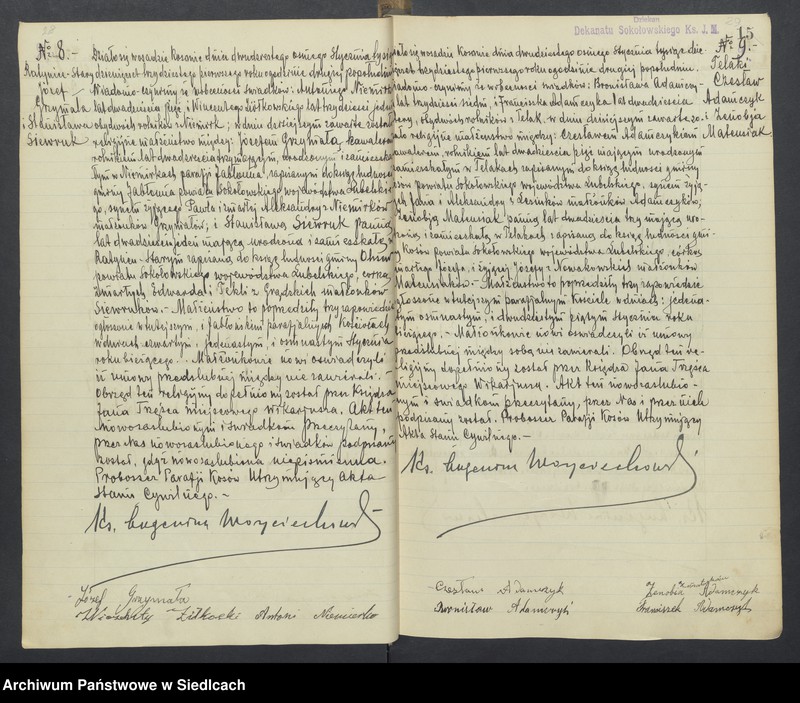 28
№ 8.-
Ratyniec-Stary
Józef
Grzymała
i Stanisława
Siewruk
Działo się w osadzie Kosowie dnia dwudziestego ósmego Stycznia tysiąc
dziewięćset trzydziestego pierwszego roku o godzinie drugiej popołudniu.
Wiadomo czynimy że w obecności świadków: Antoniego
lat dwadzieścia pięć i Wincentego Ziółkowskiego lat trzydzieści jeden
obydwóch rolników z; w dniu dzisiejszym zawarte zostało
religijne małżeństwo między: Józefem Grzymałą kawalerem
rolnikiem lat dwadzieścia trzy mającym, urodzonym i zamieszka-
łym w parafji Jabłonna, zapisanym do ksiąg ludności
gminy Jabłonna powiatu Sokołowskiego województwa Lubelskie-
go, synem żyjącego Pawła i zmarłej Aleksandry z
małżonków Grzymałów; i Stanisławą Siewruk panną
lat dwadzieścia jeden mającą urodzoną i zamieszkałą w
Ratyńcu-Starym zapisaną do ksiąg ludności gminy
powiatu Sokołowskiego województwa Lubelskiego, córką
zmarłych Edwarda i Tekli z małżonków
Siewruków.- Małżeństwo to poprzedziły trzy zapowiedzi
ogłoszone w tutejszym, i Jabłońskim parafjalnych Kościołach
w dniach: czwartym, jedenastym, i osmnastym Stycznia
roku bieżącego.- Małżonkowie nowi oświadczyli
iż umowy przedślubnej między nie zawierali.-
Obrzęd ten religijny dopełniony został przez Księdza
Jana Trzeza miejscowego wikarjusza. Akt ten
Nowozaślubionym i świadkom przeczytany,
przez Nas nowozaślubionego i świadków podpisany
został, gdyż nowozaślubiona niepiśmienna.
Proboszcz Parafji Kosów Utrzymujący Akta
Stanu Cywilnego.-
Ks. Eugenjusz Wojciechowski
Józef Grzymała
Antoni
29
Dziekan
Dekanatu Sokołowskiego Ks. J. N.
15
№ 9.-
Telaki
Czesław
Adamczyk
i Zenobja
Mateusiak
Działo się w osadzie Kosowie dnia dwudziestego ósmego Stycznia tysiąc dzie-
więćset trzydziestego pierwszego roku o godzinie drugiej popołudniu.
Wiadomo czynimy że w obecności świadków: Bronisława Adamczy-
ka lat trzydzieści siedm, i Franciszka Adamczyka lat dwadzieścia
obydwóch rolników z Telak, w dniu dzisiejszym zawarte zo-
stało religijne małżeństwo między: Czesławem Adamczykiem
kawalerem, rolnikiem lat dwadzieścia pięć mającym urodzonym
i zamieszkałym w Telakach zapisanym do ksiąg ludności gminy
Kosów powiatu Sokołowskiego województwa Lubelskiego, synem żyją-
cych Jana i Aleksandry z małżonków Adamczyków;
i Zenobją Mateusiak panną lat dwadzieścia trzy mającą uro-
dzoną i zamieszkałą w Telakach zapisaną do ksiąg ludności gmi-
ny Kosów powiatu Sokołowskiego województwa Lubelskiego, córką
zmarłego Józefa, i żyjącej Józefy z Nowakowskich małżonków
Mateusiaków.- Małżeństwo to poprzedziły trzy zapowiedzie
ogłoszone w tutejszym parafjalnym Kościele w dniach: jedena-
stym osmnastym, i dwudziestym piątym Stycznia roku
bieżącego.- Małżonkowie nowi oświadczyli iż umowy
przedślubnej między sobą nie zawierali. Obrzęd ten re-
ligijny dopełniony został przez Księdza Jana Trzeza
miejscowego Wikarjusza.- Akt ten nowozaślubio-
nym i świadkom przeczytany, przez Nas i przez nich
podpisany został. Proboszcz Parafji Kosów Utrzymujący
Akta Stanu Cywilnego.-
Ks. Eugenjusz Wojciechowski
Czesław Adamczyk
Bronisław Adamczyk
Zenobia Adamczyk
Franciszek Adamczyk
Archiwum Państwowe w Siedlcach